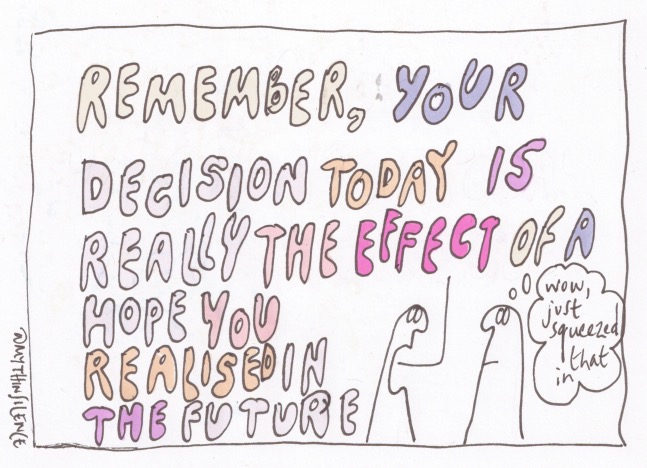 REMEMBER, YOUR
DECISION TODAY IS
REALLY THE EFFECT OF A
HOPE YOU
REALISED IN
THE FUTURE
wow,
just
squeezed
that
in